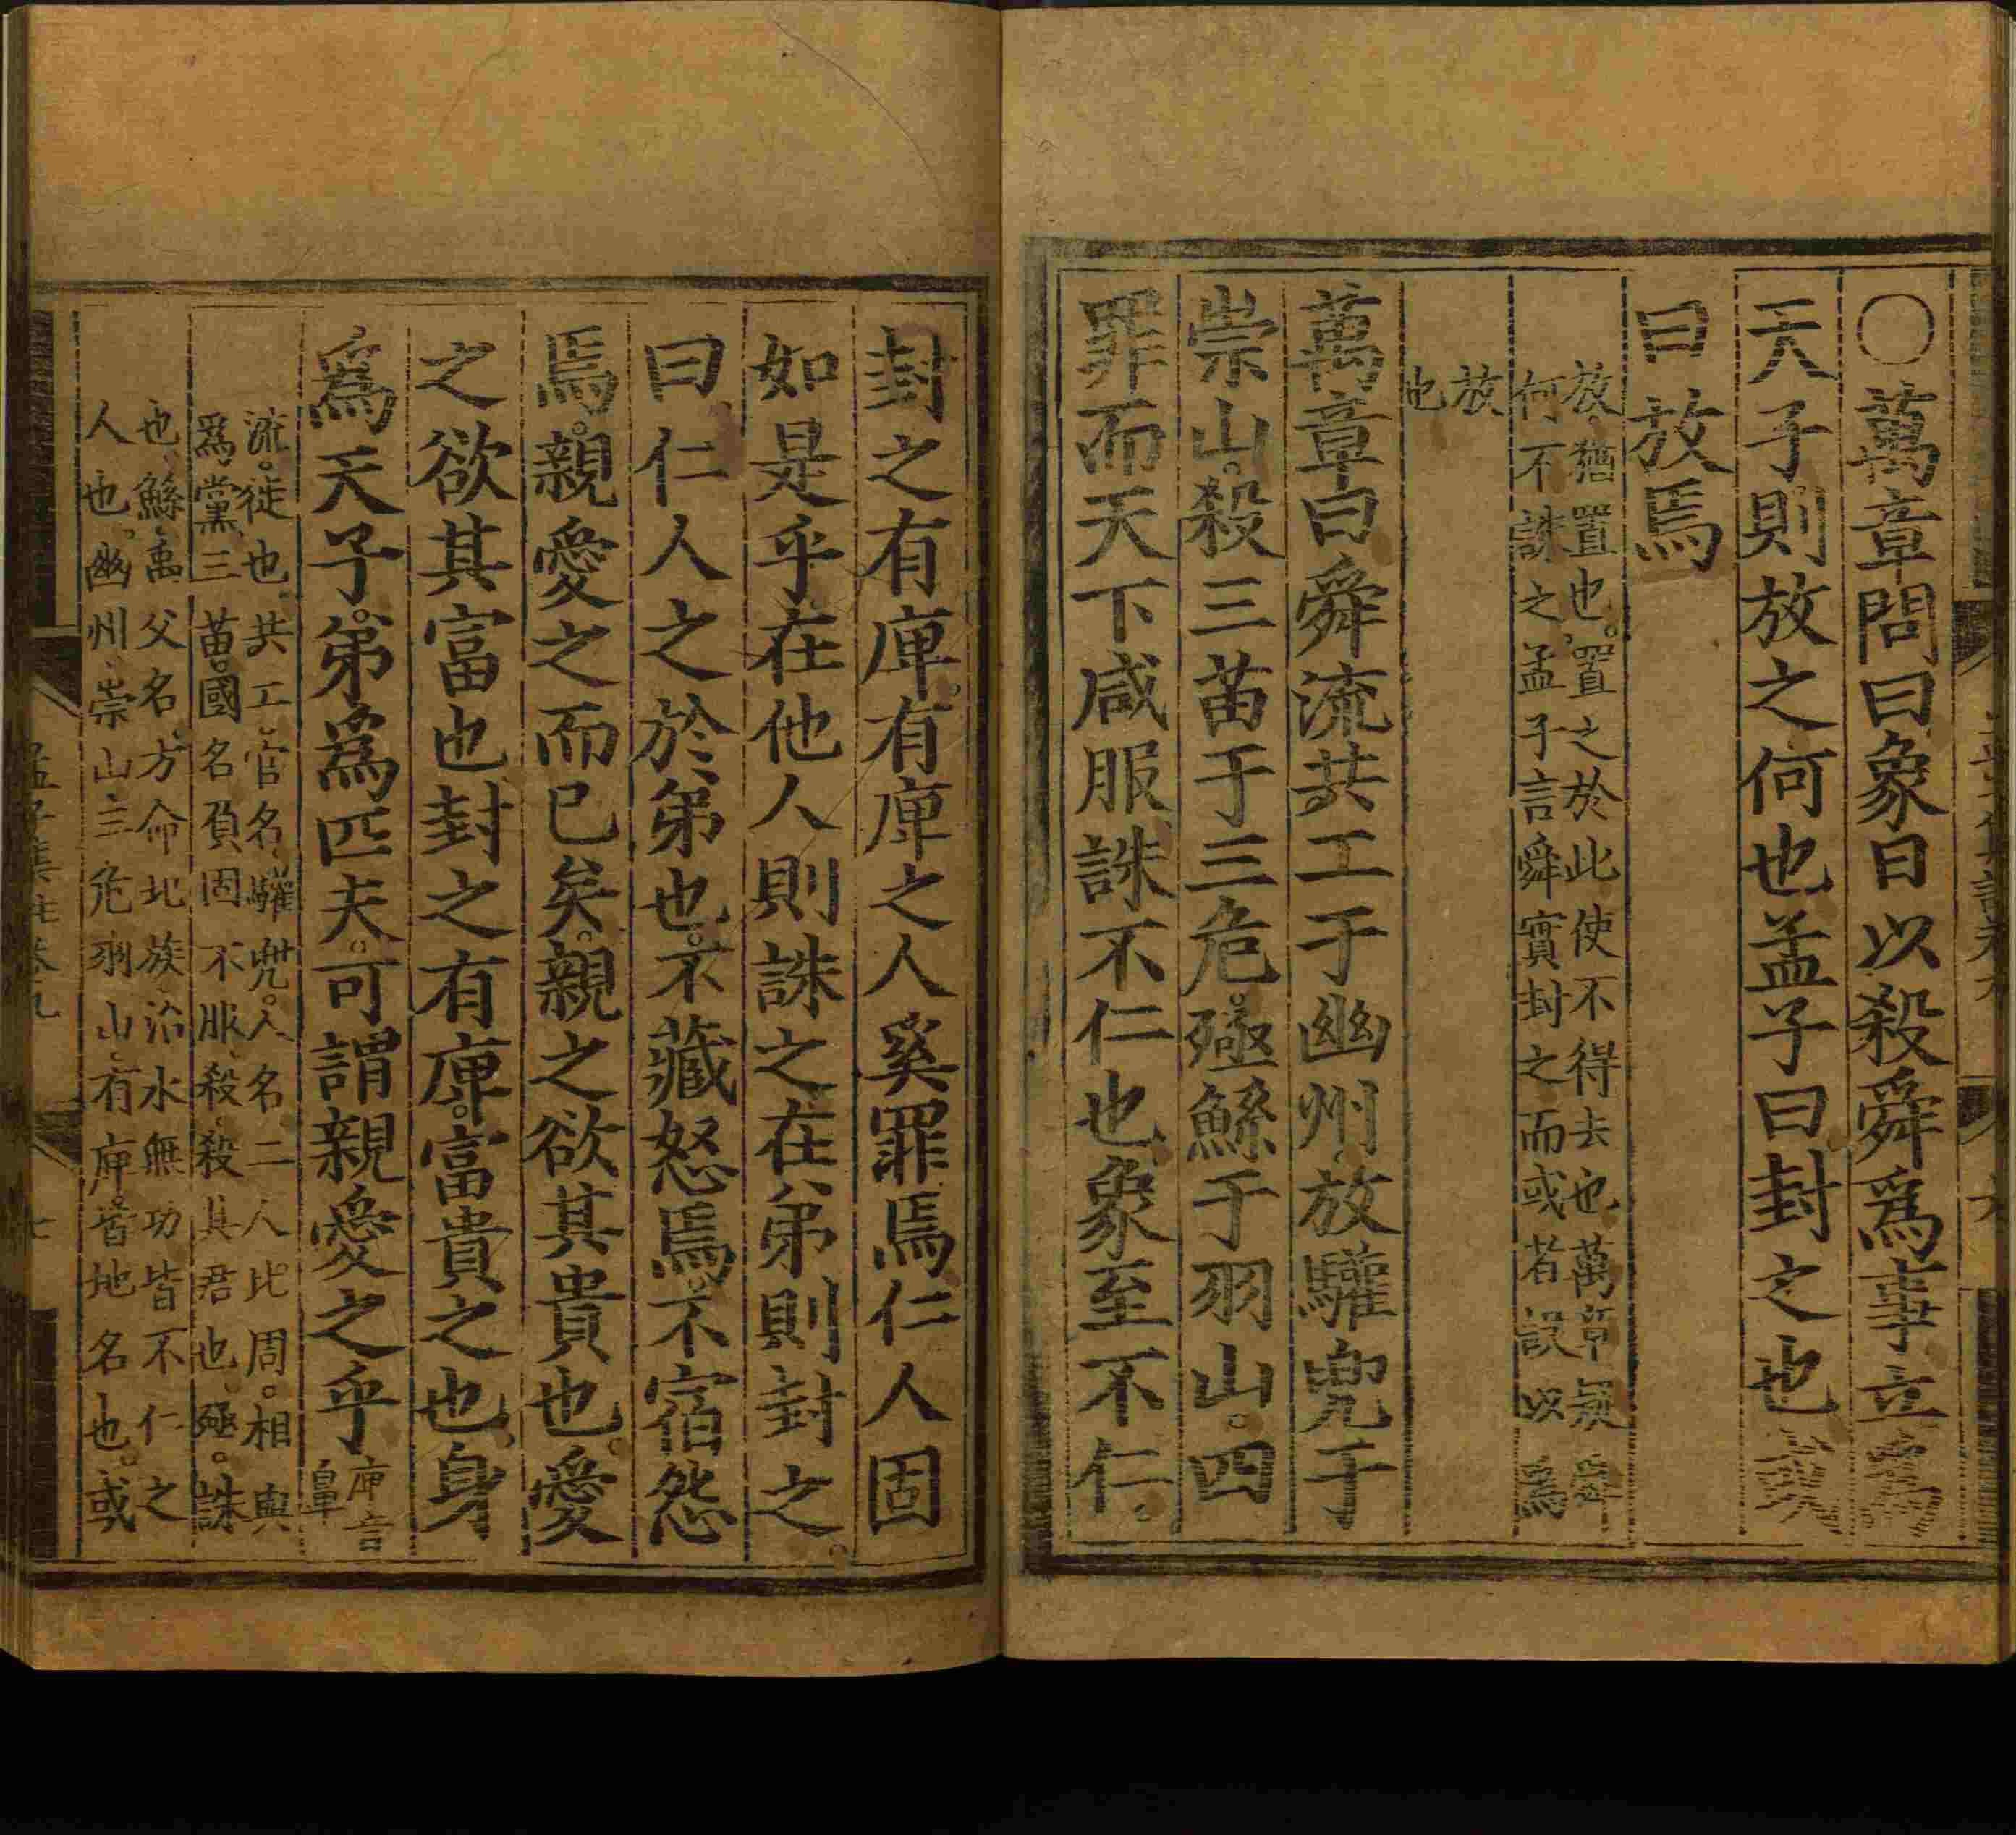 ○萬章問曰象日以殺舜爲事立爲
天子則放之何也孟子曰封之也或
曰放焉
放猶置也。置之於此使不得去也萬章疑舜
何不誅之孟子言舜實封之而或者誤以爲
放
也
萬章曰舜流共工于幽州放驩兜于
崇山。殺三苗于三危。殛鯀于羽山。四
罪而天下咸服誅不仁也象至不仁、
封之有庳。有庳之人奚罪焉仁人固
如是乎在他人則誅之、在弟則封之。
曰、仁人之於弟也。不藏怒焉。不宿怨
焉。親愛之而已矣。親之欲其貴也。愛
之欲其富也封之有庳。富貴之也、身
爲天子。弟爲匹夫。可謂親愛之乎
庳音
鼻
流。徙也。共工。官名、驩兜。人名二人比周。相與
爲黨、三苗。國名負固不服、殺、殺其君也、殛。誅
也、鯀、禹父名、方命圮族、治水無功皆不仁之
人也。幽州、崇山、三危羽山、有庳。皆地名也。或
孟子集註卷九
七